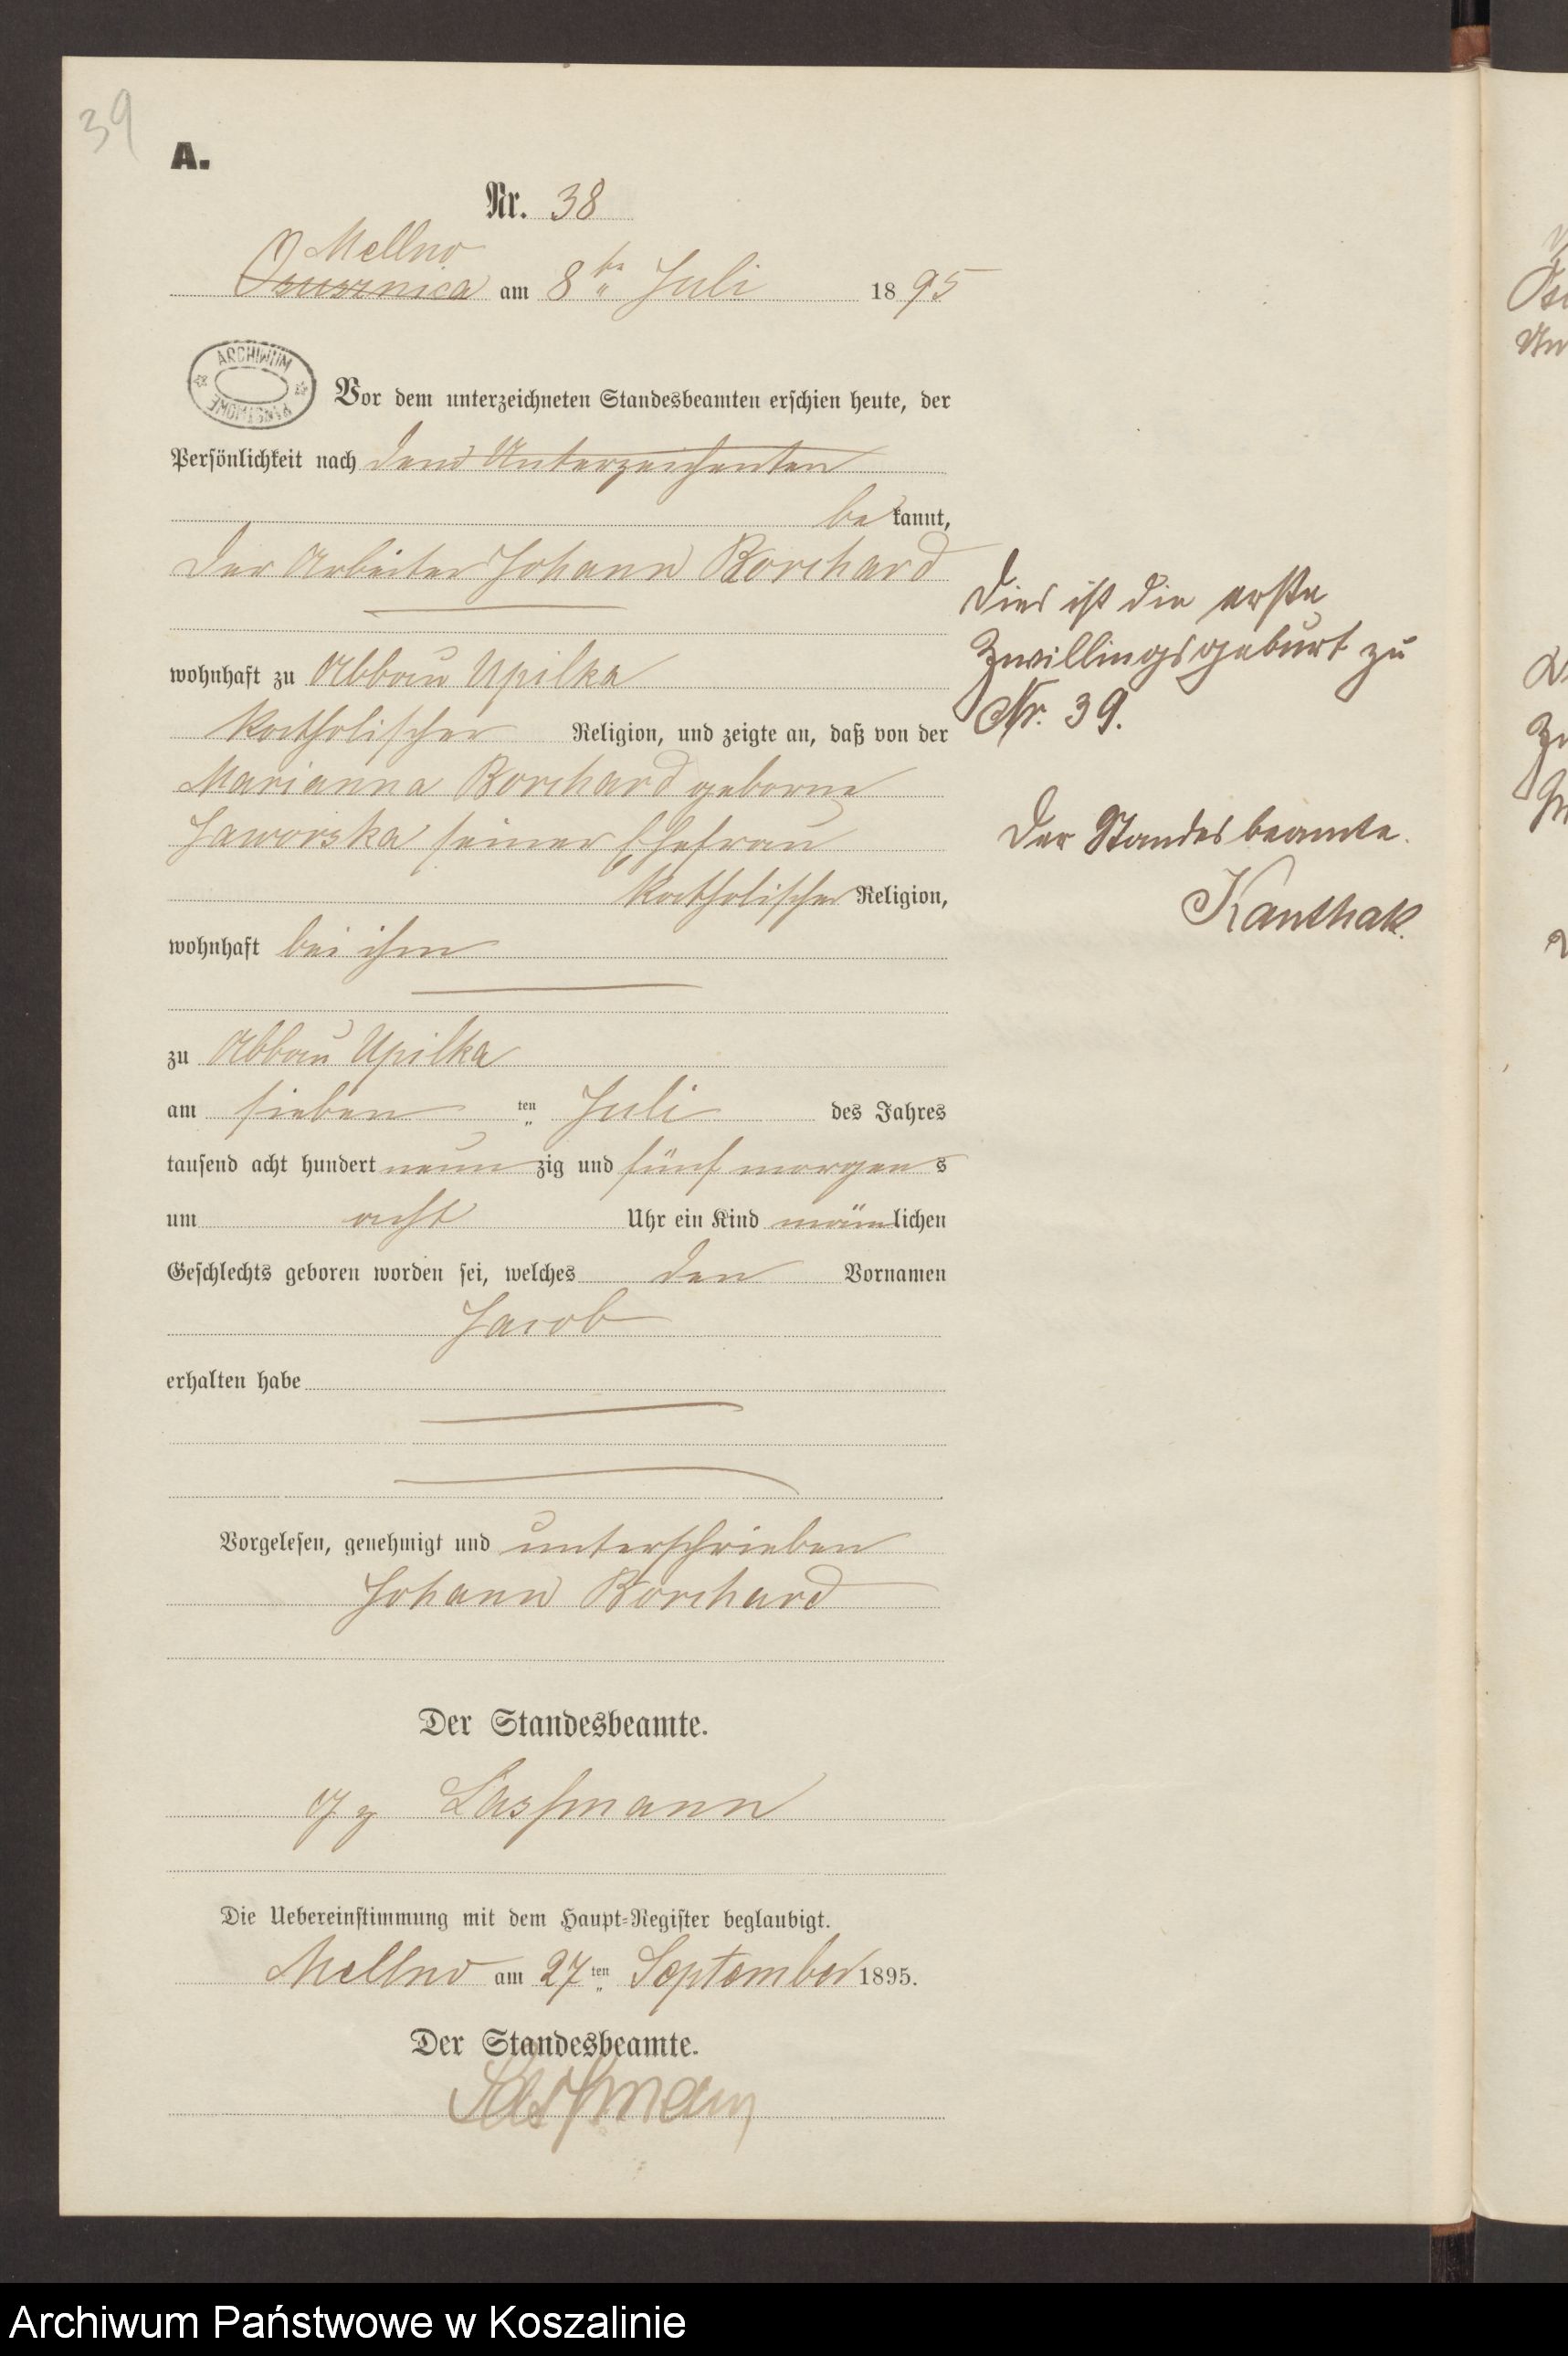 39
A.
Nr. 38
Mellno
Osusznica am 8ten Juli 1895
ARCHIWUM PAŃSTWOWE
Vor dem unterzeichneten Standesbeamten erschien heute, der
Persönlichkeit nach dem Unterzeichenten
bekannt,
der Arbeiter Johann Borchard
wohnhaft zu Abbau Upilka
katholischer Religion, und zeigte an, daß von der
Marianna Borchard geborne
Jaworska seiner Ehefrau
katholischer Religion,
wohnhaft bei ihm
zu Abbau Upilka
am sieben ten Juli des Jahres
tausend acht hundert neunzig und fünf morgens
um acht Uhr ein Kind männlichen
Geschlechts geboren worden sei, welches den Vornamen
Jacob
erhalten habe
Vorgelesen, genehmigt und unterschrieben
Johann Borchard
Der Standesbeamte.
Lassmann
Die Uebereinstimmung mit dem Haupt-Register beglaubigt.
Mellno am 27ten September 1895.
Der Standesbeamte.
Lassmann
Dies ist die erste
Zwillingsgeburt zu
Nr. 39.
Der Standesbeamte.
Kanthak.
Archiwum Państwowe w Koszalinie